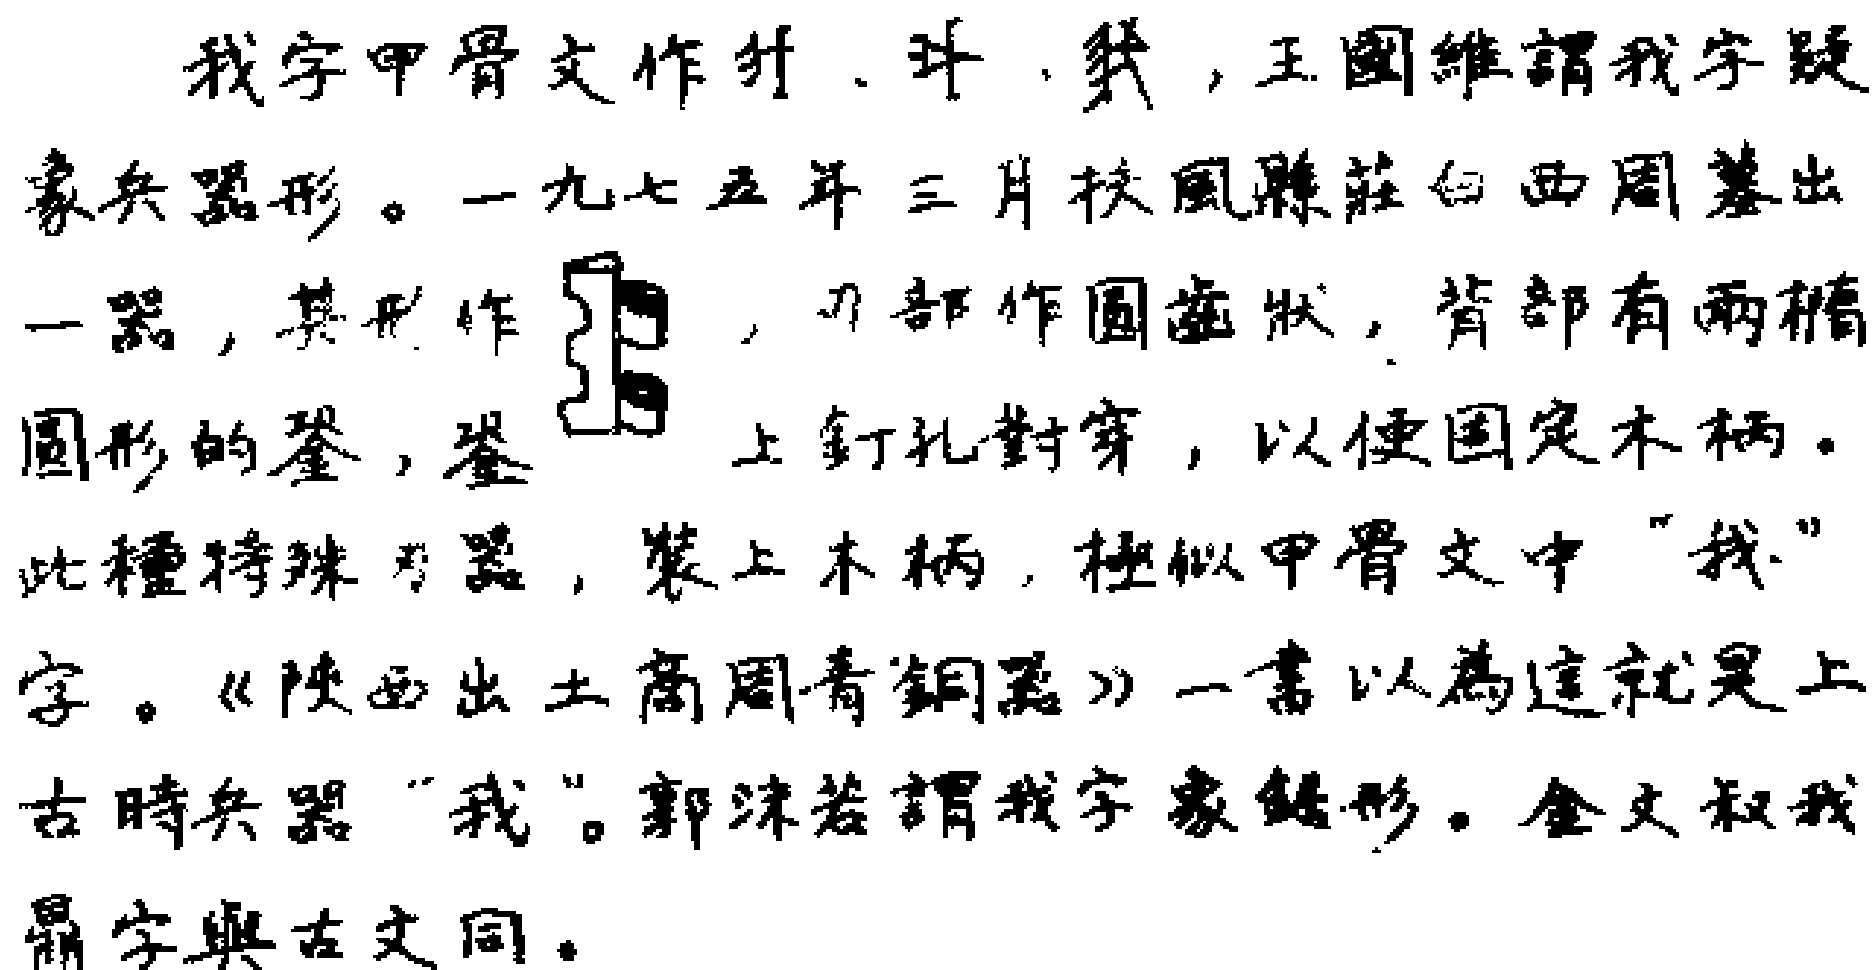 我字甲骨文作、、，王國維謂我字疑
象兵器形。一九七五年三月扶風縣莊白西周墓出
一器，其形作，刃部作圓齒狀，背部有兩橢
圓形的銎，銎上釘孔對穿，以便固定木柄。
此種特殊刃器，裝上木柄，極似甲骨文中“我”
字。《陝西出土商周青銅器》一書以為這就是上
古時兵器“我”。郭沫若謂我字象鋸形。金文叔我
鼎字與古文同。